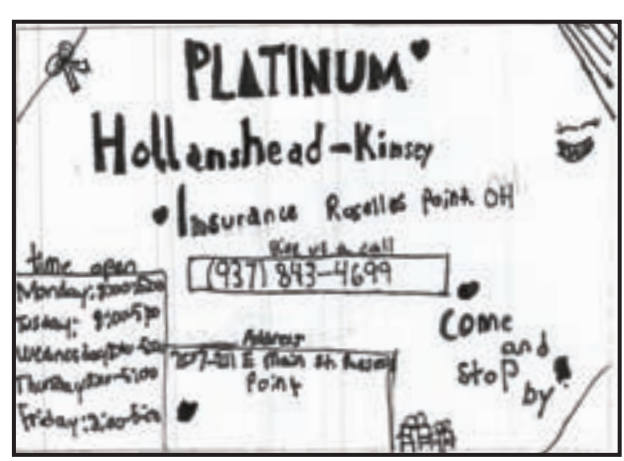 PLATINUM
Hollanshead-Kinsey
Insurance Roselles Point OH
Give us a call
(937) 843-4699
time open
Monday: 8:00-5:00
Tusday: 8:00-5:00
Wednesday
Thursday -5:00
Friday: -5:00
Address
E Main St.
Point
Come
and
stop
by!